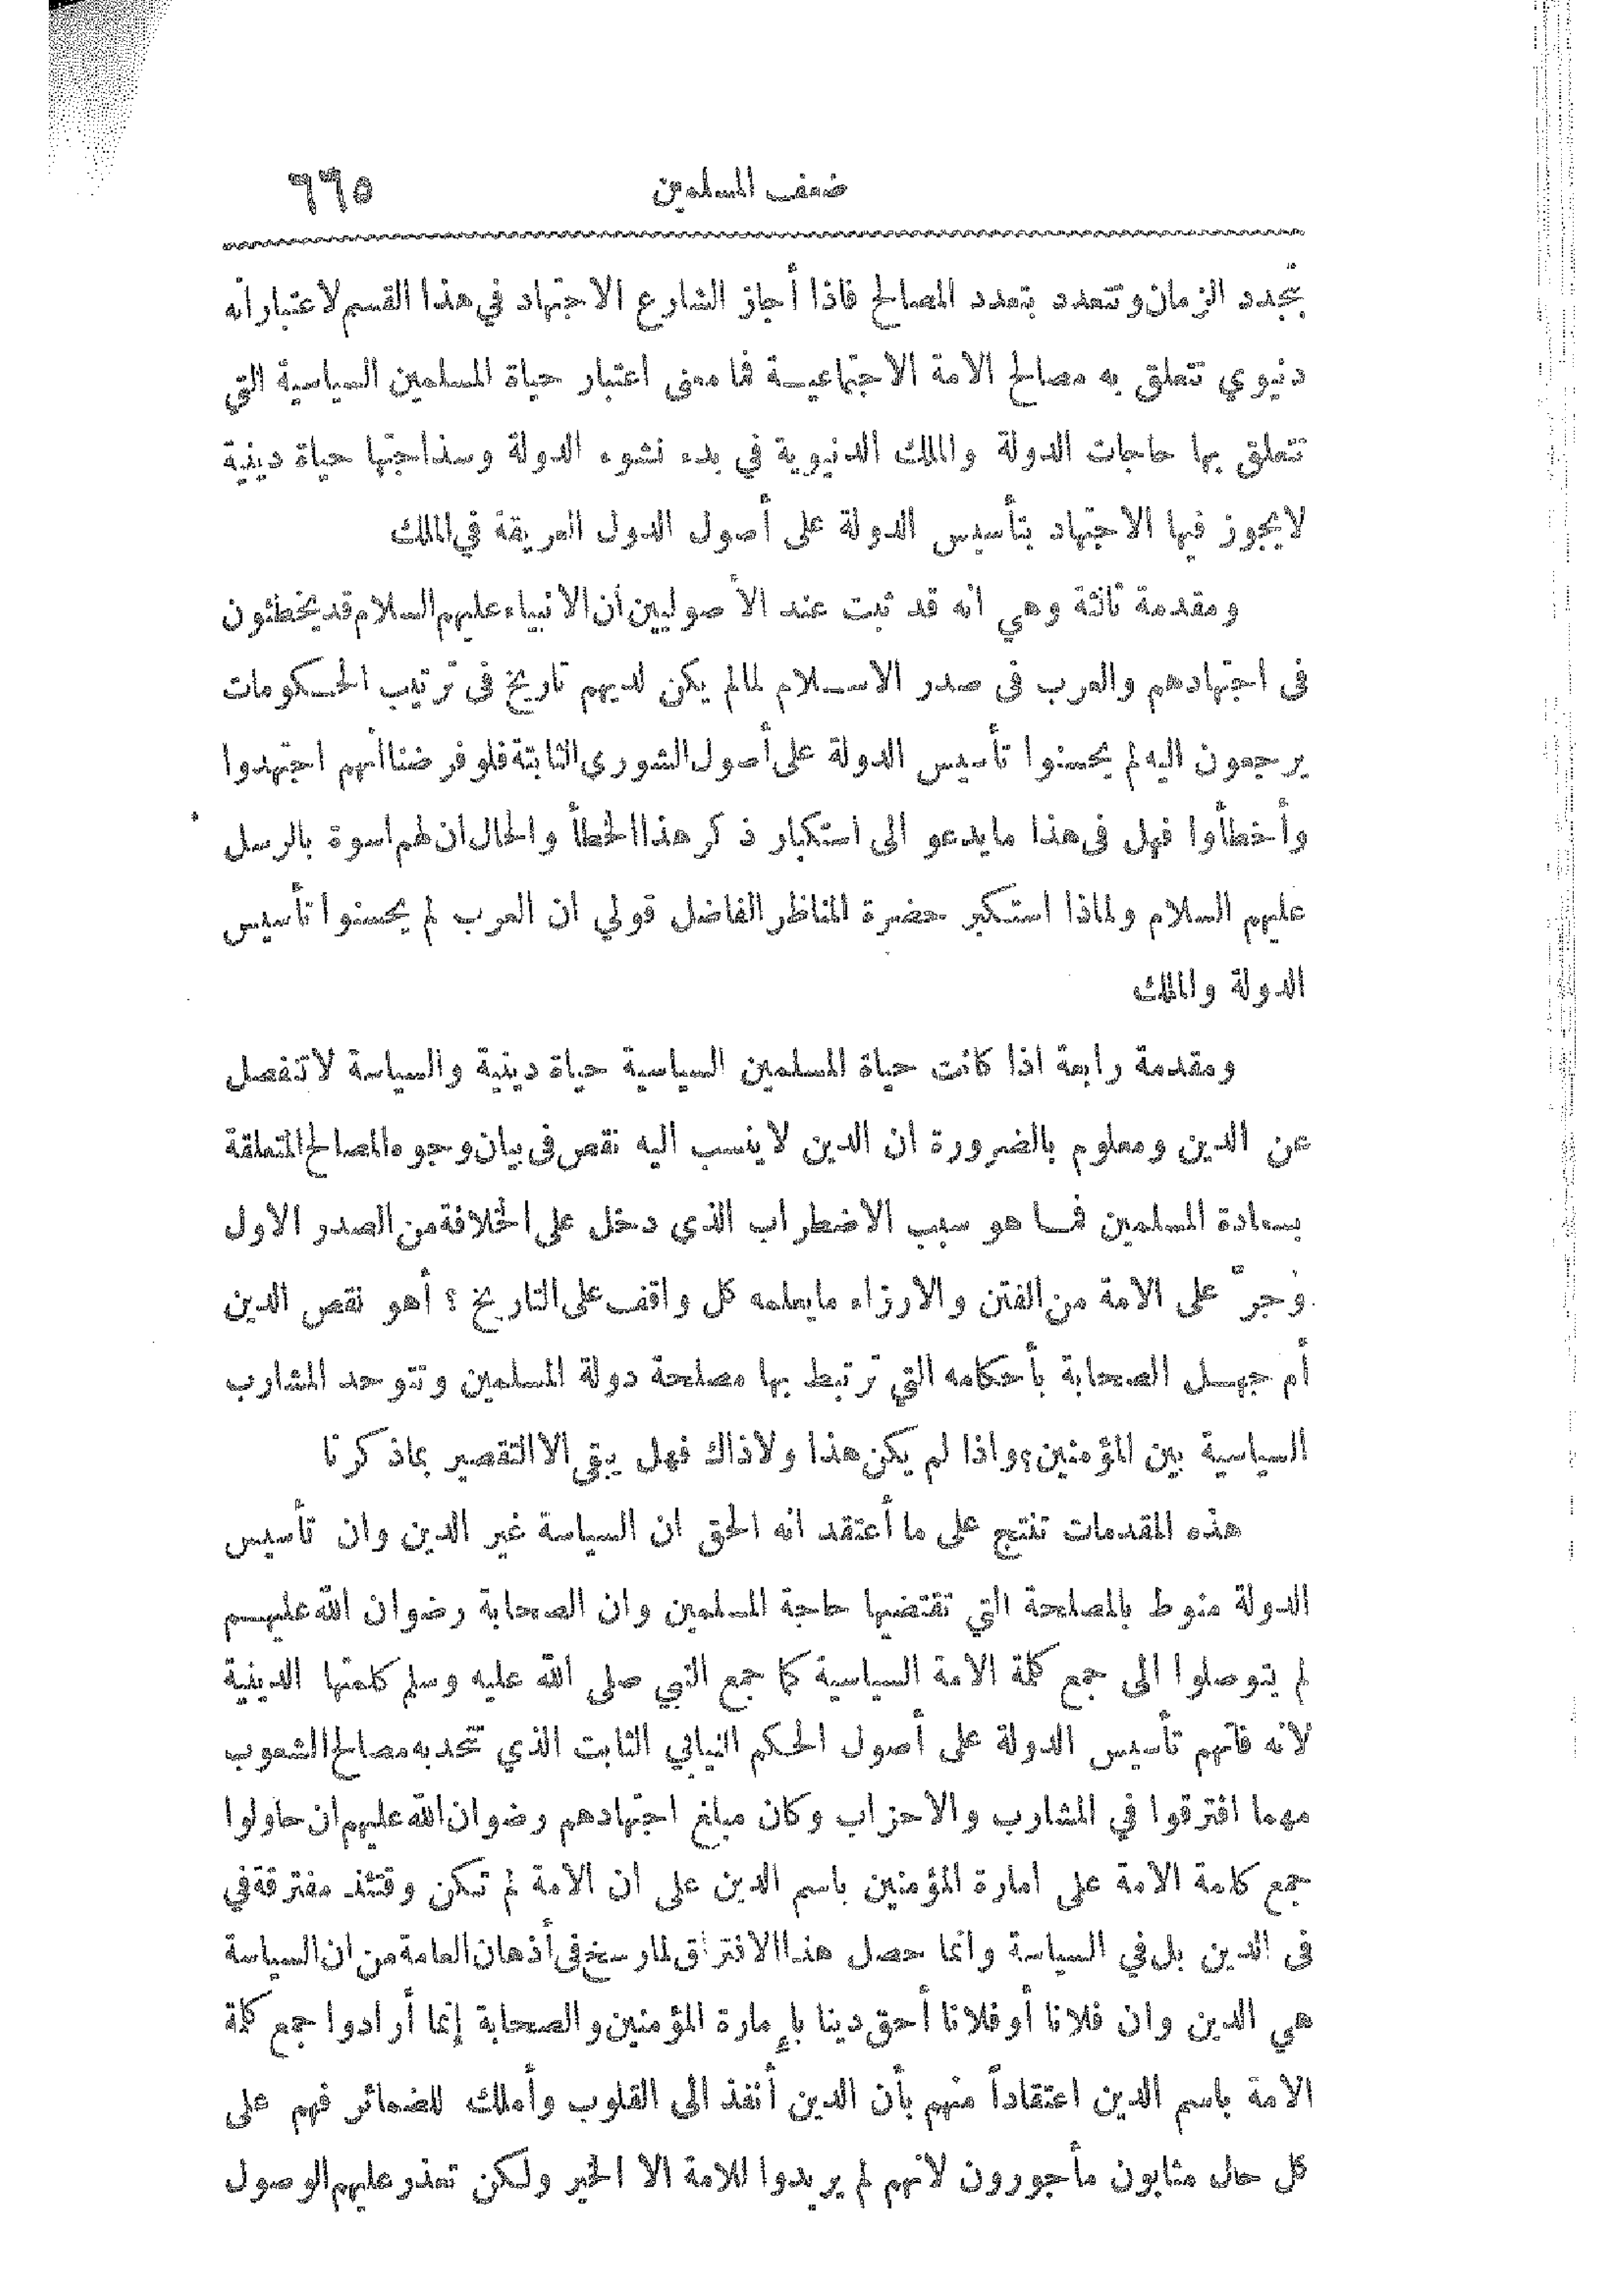 ضعف المسلمين ٦٦٥
بتجدد الزمان وتتعدد بتعدد المصالح فاذا أجاز الشارع الاجتهاد في هذا القسم لاعتبار أنه
دنيوي تتعلق به مصالح الامة الاجتماعيـة فما معنى اعتبار حياة المسلمين السياسية التي
تتعلق بها حاجات الدولة والملك الدنيوية في بدء نشوء الدولة وسذاجتها حياة دينية
لايجوز فيها الاجتهاد بتأسيس الدولة على أصول الدول العريقة في الملك
ومقدمة ثالثة وهي انه قد ثبت عند الأصوليين أن الانبياء عليهم السلام قد يخطئون
فى اجتهادهم والعرب فى صدر الاسـلام لما لم يكن لديهم تاريخ فى ترتيب الحـكومات
يرجعون اليه لم يحسنوا تأسيس الدولة على أصول الشورى الثابتة فلو فرضنا أنهم اجتهدوا
وأخطأوا فهل فى هذا مايدعو الى استكبار ذكر هذا الخطأ والحال ان لهم اسوة بالرسل
عليهم السلام ولماذا استـكبر حضرة المناظر الفاضل قولي ان العرب لم يحسنوا تأسيس
الدولة والملك
ومقدمة رابعة اذا كانت حياة المسلمين السياسية حياة دينية والسياسة لاتنفصل
عن الدين ومعلوم بالضرورة ان الدين لاينسب اليه نقص فى بيان وجوه المصالح المتعلقة
بسعادة المسلمين فـما هو سبب الاضطراب الذى دخل على الخلافة من الصدر الاول
وجرّ على الامة من الفتن والارزاء مايعلمه كل واقف على التاريخ ؟ أهو نقص الدين
أم جهـل الصحابة بأحكامه التي ترتبط بها مصلحة دولة المسلمين وتتوحد المشارب
السياسية بين المؤمنين؟ واذا لم يكن هذا ولاذاك فهل يبقى الا التقصير بماذكرنا
هذه المقدمات تنتج على ما أعتقد انه الحق ان السياسة غير الدين وان تأسيس
الدولة منوط بالمصلحة التي تقتضيها حاجة المسلمين وان الصحابة رضوان الله عليهـم
لم يتوصلوا الى جمع كلمة الامة السياسية كما جمع النبي صلى الله عليه وسلم كلمتها الدينية
لانه فاتهم تأسيس الدولة على أصول الحكم النيابي الثابت الذي تتحد به مصالح الشعوب
مهما افترقوا في المشارب والاحزاب وكان مبلغ اجتهادهم رضوان الله عليهم ان حاولوا
جمع كلمة الامة على امارة المؤمنين باسم الدين على ان الامة لم تـكن وقتئذ مفترقة في
فى الدين بل في السياسة وانما حصل هذا الافتراق لما رسخ فى أذهان العامة من ان السياسة
هي الدين وان فلانا أو فلانا أحق دينا بإمارة المؤمنين والصحابة إنما أرادوا جمع كلمة
الامة باسم الدين اعتقاداً منهم بأن الدين أنفذ الى القلوب وأملك للضمائر فهم على
كل حال مثابون مأجورون لانهم لم يريدوا للامة الا الخير ولـكن تعذر عليهم الوصول